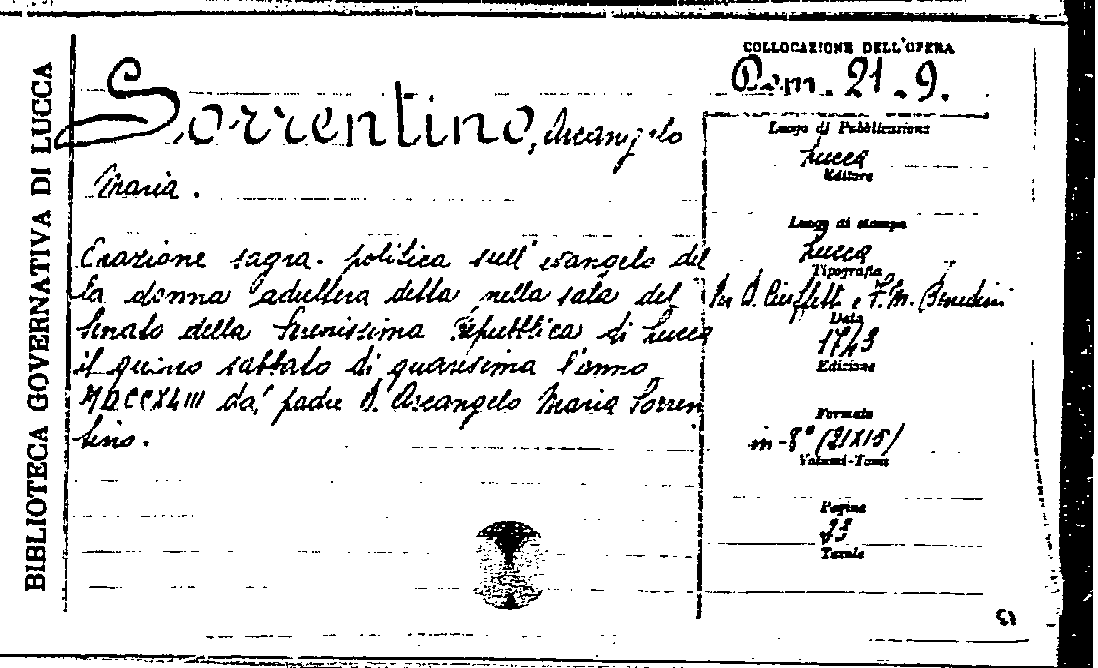 BIBLIOTECA GOVERNATIVA DI LUCCA
COLLOCAZIONE DELL'OPERA
Bem. 21.9.
Sorrentino, Arcangelo
Maria.
Orazione sagra-politica sull'evangelo del
la donna adultera detta nella sala del
Senato della Serenissima Repubblica di Lucca
il quinto sabbato di quaresima l'anno
MDCCXLIII da' padre D. Arcangelo Maria Sorren
tino.
Luogo di Pubblicazione
Lucca
Editore
Luogo di stampa
Lucca
Tipografia
Per D. Ciuffetti e F. M. Benedini
Data
1743
Edizione
Formato
in-8° (21X15)
Volumi-Tomo
Pagine
23
Tavole